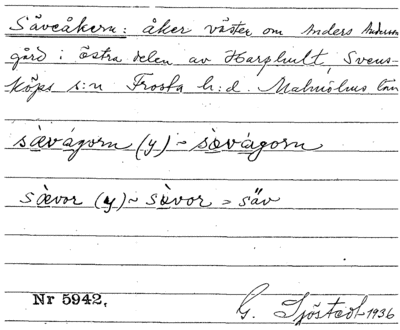 Säveåkern: åker väster om Anders Anderssons
gård i östra delen av Harphult, Svens-
köps s:n Frosta h:d. Malmöhus län
sævågorn (y) ~ sòvågorn
sævor (y) ~ sòvor = säv
Nr 5942.
G. Sjöstedt 1936